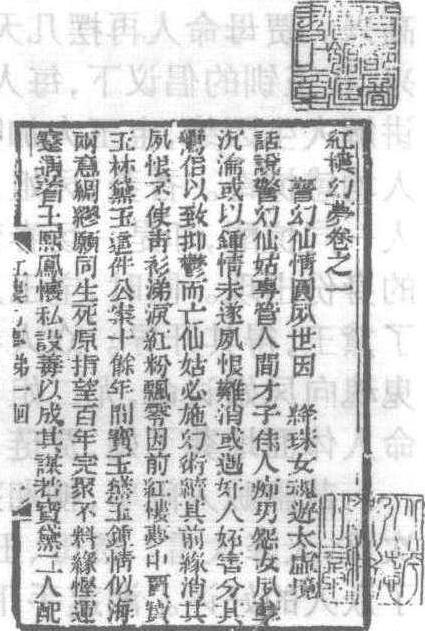 紅樓幻夢卷之一
警幻仙情圓夙世因　絳珠女魂遊太虛境
話說警幻仙姑專管人間才子佳人痴男怨女夙孽
沉淪或以鍾情未遂夙恨難消或遇奸人妬害分其
鸞侶以致抑鬱而亡仙姑必施幻術續其前緣消其
夙恨不使靑衫涕淚紅粉飄零因前紅樓夢中賈寶
玉林黛玉這件公案十餘年間寶玉黛玉鍾情似海
兩意綢繆願同生死原指望百年完聚不料緣慳運
蹇溝着王熙鳳懷私設毒以成其謀若寶黛二人配
紅樓幻夢第一回　一